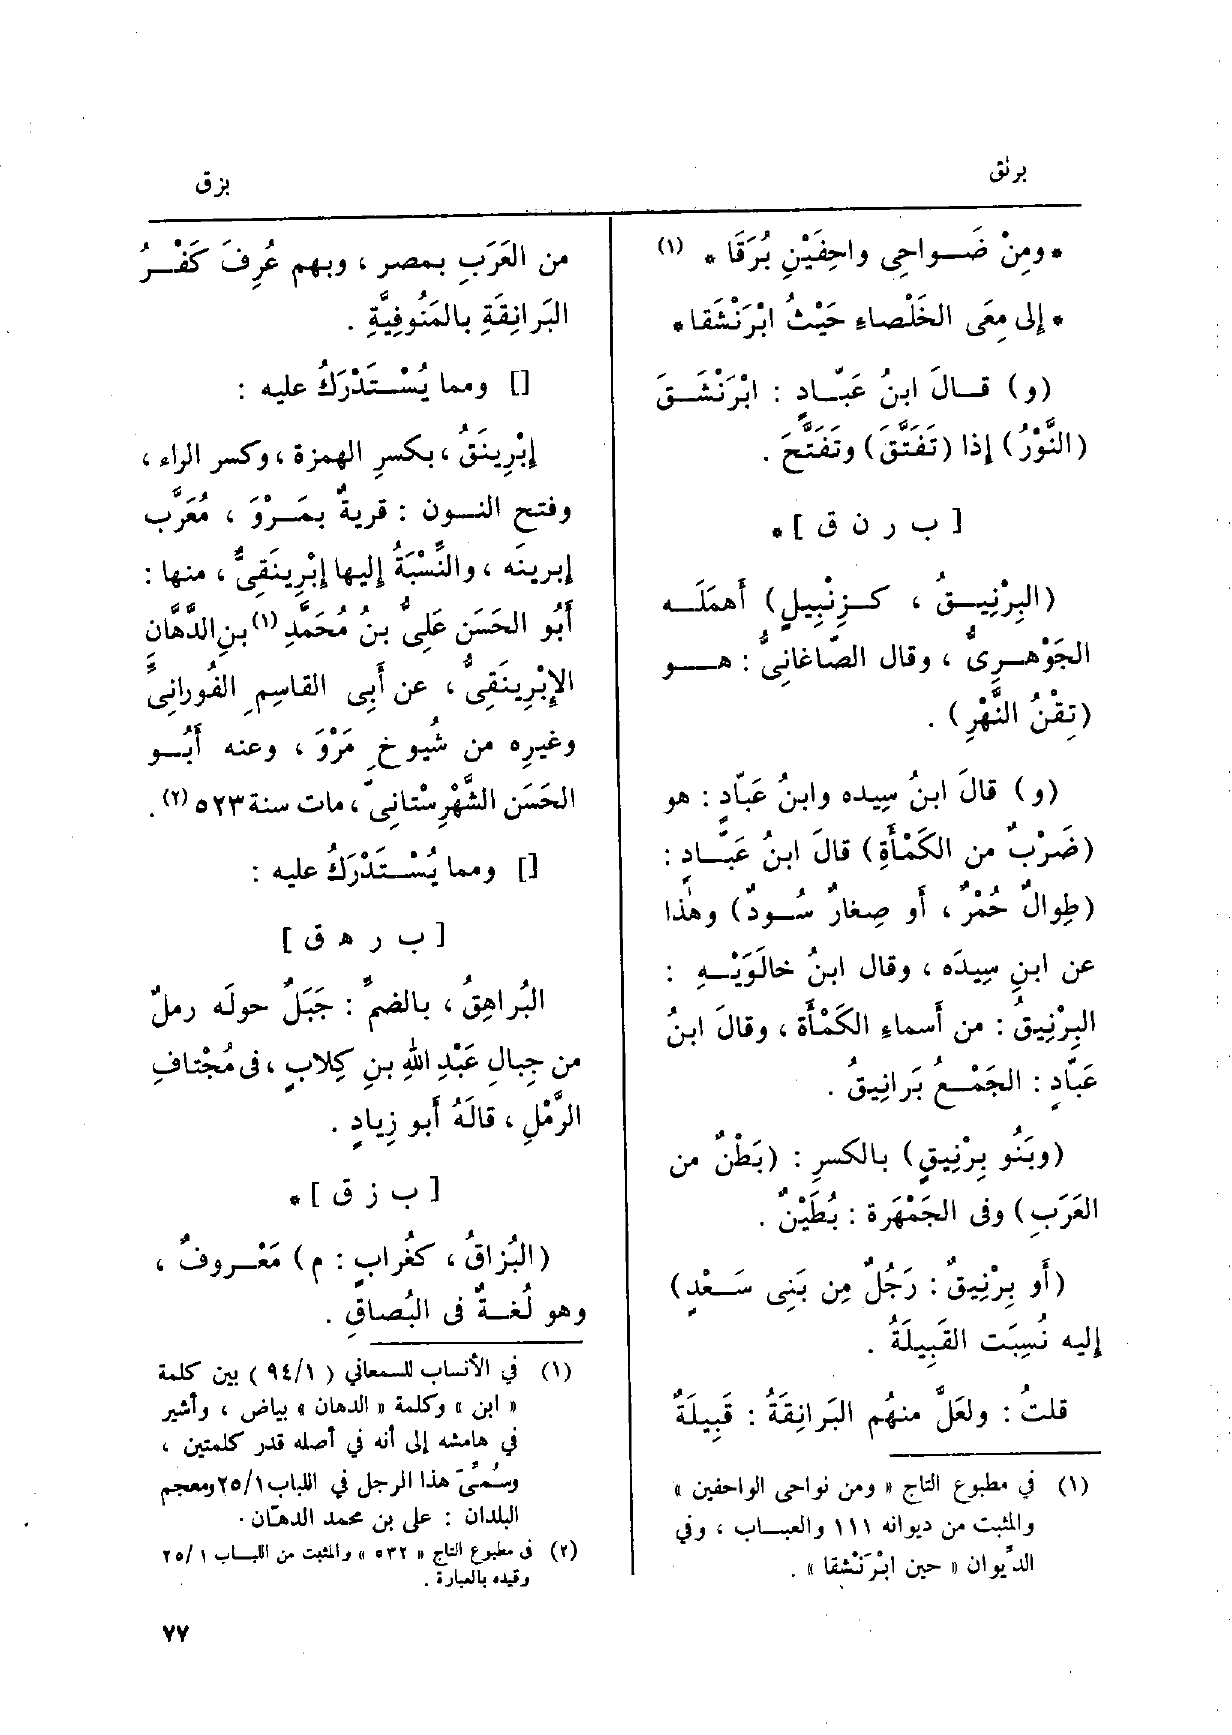 برنق
بزق
* ومِنْ ضَـواحِى واحِفَيْنِ بُرَقَا * (١)
* إلى مِعَى الخَلْصاءِ حَيْثُ ابْرَنْشَقا *
(و) قـالَ ابنُ عَبّـادٍ : ابْرَنْشَـقَ
(النَّوْرُ) إذا (تَفَتَّقَ) وتَفَتَّحَ .
[ ب ر ن ق ] *
(البِرْنِيـقُ ، كـزِنْبِيلٍ) أَهمَلَـه
الجَوْهـرِىُّ ، وقال الصّاغانِىُّ : هـو
(تِقْنُ النَّهْرِ) .
(و) قالَ ابنُ سِيده وابنُ عَبّادٍ : هو
(ضَرْبٌ من الكَمْأَةِ) قالَ ابنُ عَبّـادٍ :
(طِوالٌ حُمْرٌ ، أَو صِغارٌ سُـودٌ) وهٰذا
عن ابنِ سِيدَه ، وقال ابنُ خالَوَيْـهِ :
البِرْنِيقُ : من أَسماءِ الكَمْأَة ، وقالَ ابنُ
عَبّادٍ : الجَمْـعُ بَرانِيقُ .
(وبَنُو بِرْنِيقٍ) بالكسرِ : (بَطْنٌ من
العَرَبِ) وفى الجَمْهَرة : بُطَيْنٌ .
(أَو بِرْنِيقٌ : رَجُلٌ مِن بَنِى سَـعْدٍ)
إليه نُسِبَت القَبِيلَةُ .
قلتُ : ولعَلَّ منهُم البَرانِقَةُ : قَبِيلَةٌ
(١) في مطبوع التاج « ومن نواحى الواحفين »
والمثبت من ديوانه ١١١ والعبـاب ، وفي
الدِّيوان « حين ابْرَنْشقا » .
من العَرَبِ بمصر ، وبهم عُرِفَ كَفْـرُ
البَرانِقَةِ بالمَنُوفِيَّةِ .
[] ومما يُسْـتَدْرَكُ عليه :
إبْرِينَقُ ، بكسرِ الهمزة ، وكسر الراء ،
وفتح النـون : قريةٌ بمَـرْوَ ، مُعَرَّب
إبرينَه ، والنِّسْبَةُ إليها إبْرِينَقِىٌّ ، منها :
أَبُو الحَسَن عَلِىُّ بنُ مُحَمَّدِ (١) بنِ الدَّهّانِ
الإبْرِينَقِىُّ ، عن أَبِى القاسِمِ الفُورانِىِّ
وغيرِه من شُيوخِ مَرْوَ ، وعنه أَبُـو
الحَسَن الشَّهْرِسْتانِىّ ، مات سنة ٥٢٣ (٢) .
[] ومما يُسْـتَدْرَكُ عليه :
[ ب ر ه ق ]
البُراهِقُ ، بالضمِّ : جَبَلٌ حولَه رملٌ
من جِبالِ عَبْدِ اللهِ بنِ كِلابٍ ، فى مُجْتافِ
الرَّمْلِ ، قالَهُ أَبو زِيادٍ .
[ ب ز ق ] *
(البُزاقُ ، كغُرابٍ : م) مَعْـروفٌ ،
وهو لُغـةٌ فى البُصاقِ .
(١) في الأنساب للسمعاني ( ١/ ٩٤ ) بين كلمة
« ابن » وكلمة « الدهان » بياض ، وأشير
في هامشه إلى أنه في أصله قدر كلمتين ،
وسُمِّىَ هذا الرجل في اللباب ١/ ٢٥ ومعجم
البلدان : على بن محمد الدهّان .
(٢) فى مطبوع التاج « ٥٣٢ » والمثبت من اللبـاب ١ /٢٥
وقيده بالعبارة .
٧٧